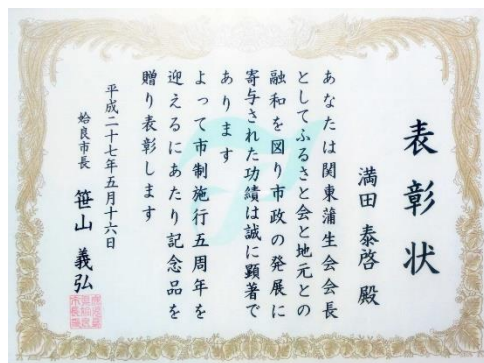 表彰状
満田泰啓殿
あなたは関東蒲生会会長
としてふるさと会と地元との
融和を図り市政の発展に
寄与された功績は誠に顕著で
あります
よって市制施行五周年を
迎えるにあたり記念品を
贈り表彰します
平成二十七年五月十六日
姶良市長 笹山義弘